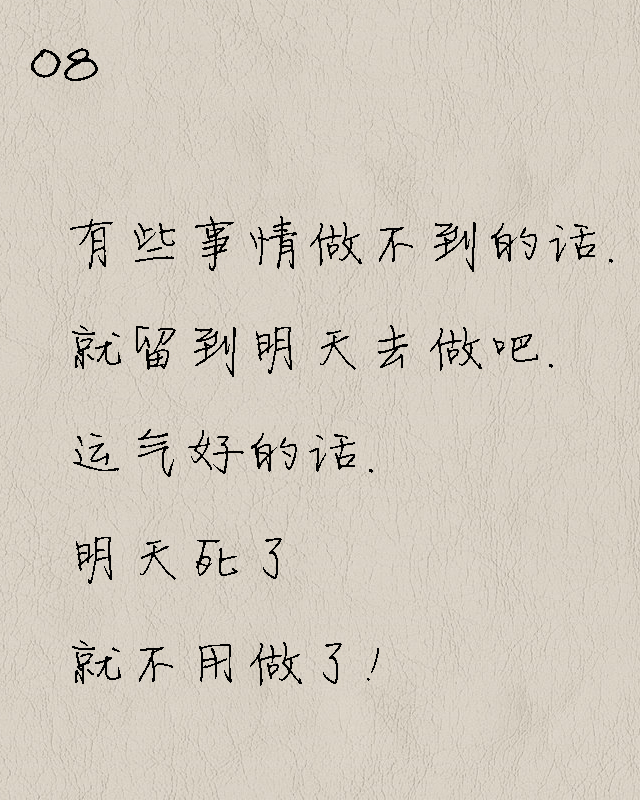 08
有些事情做不到的话.
就留到明天去做吧.
运气好的话.
明天死了
就不用做了!